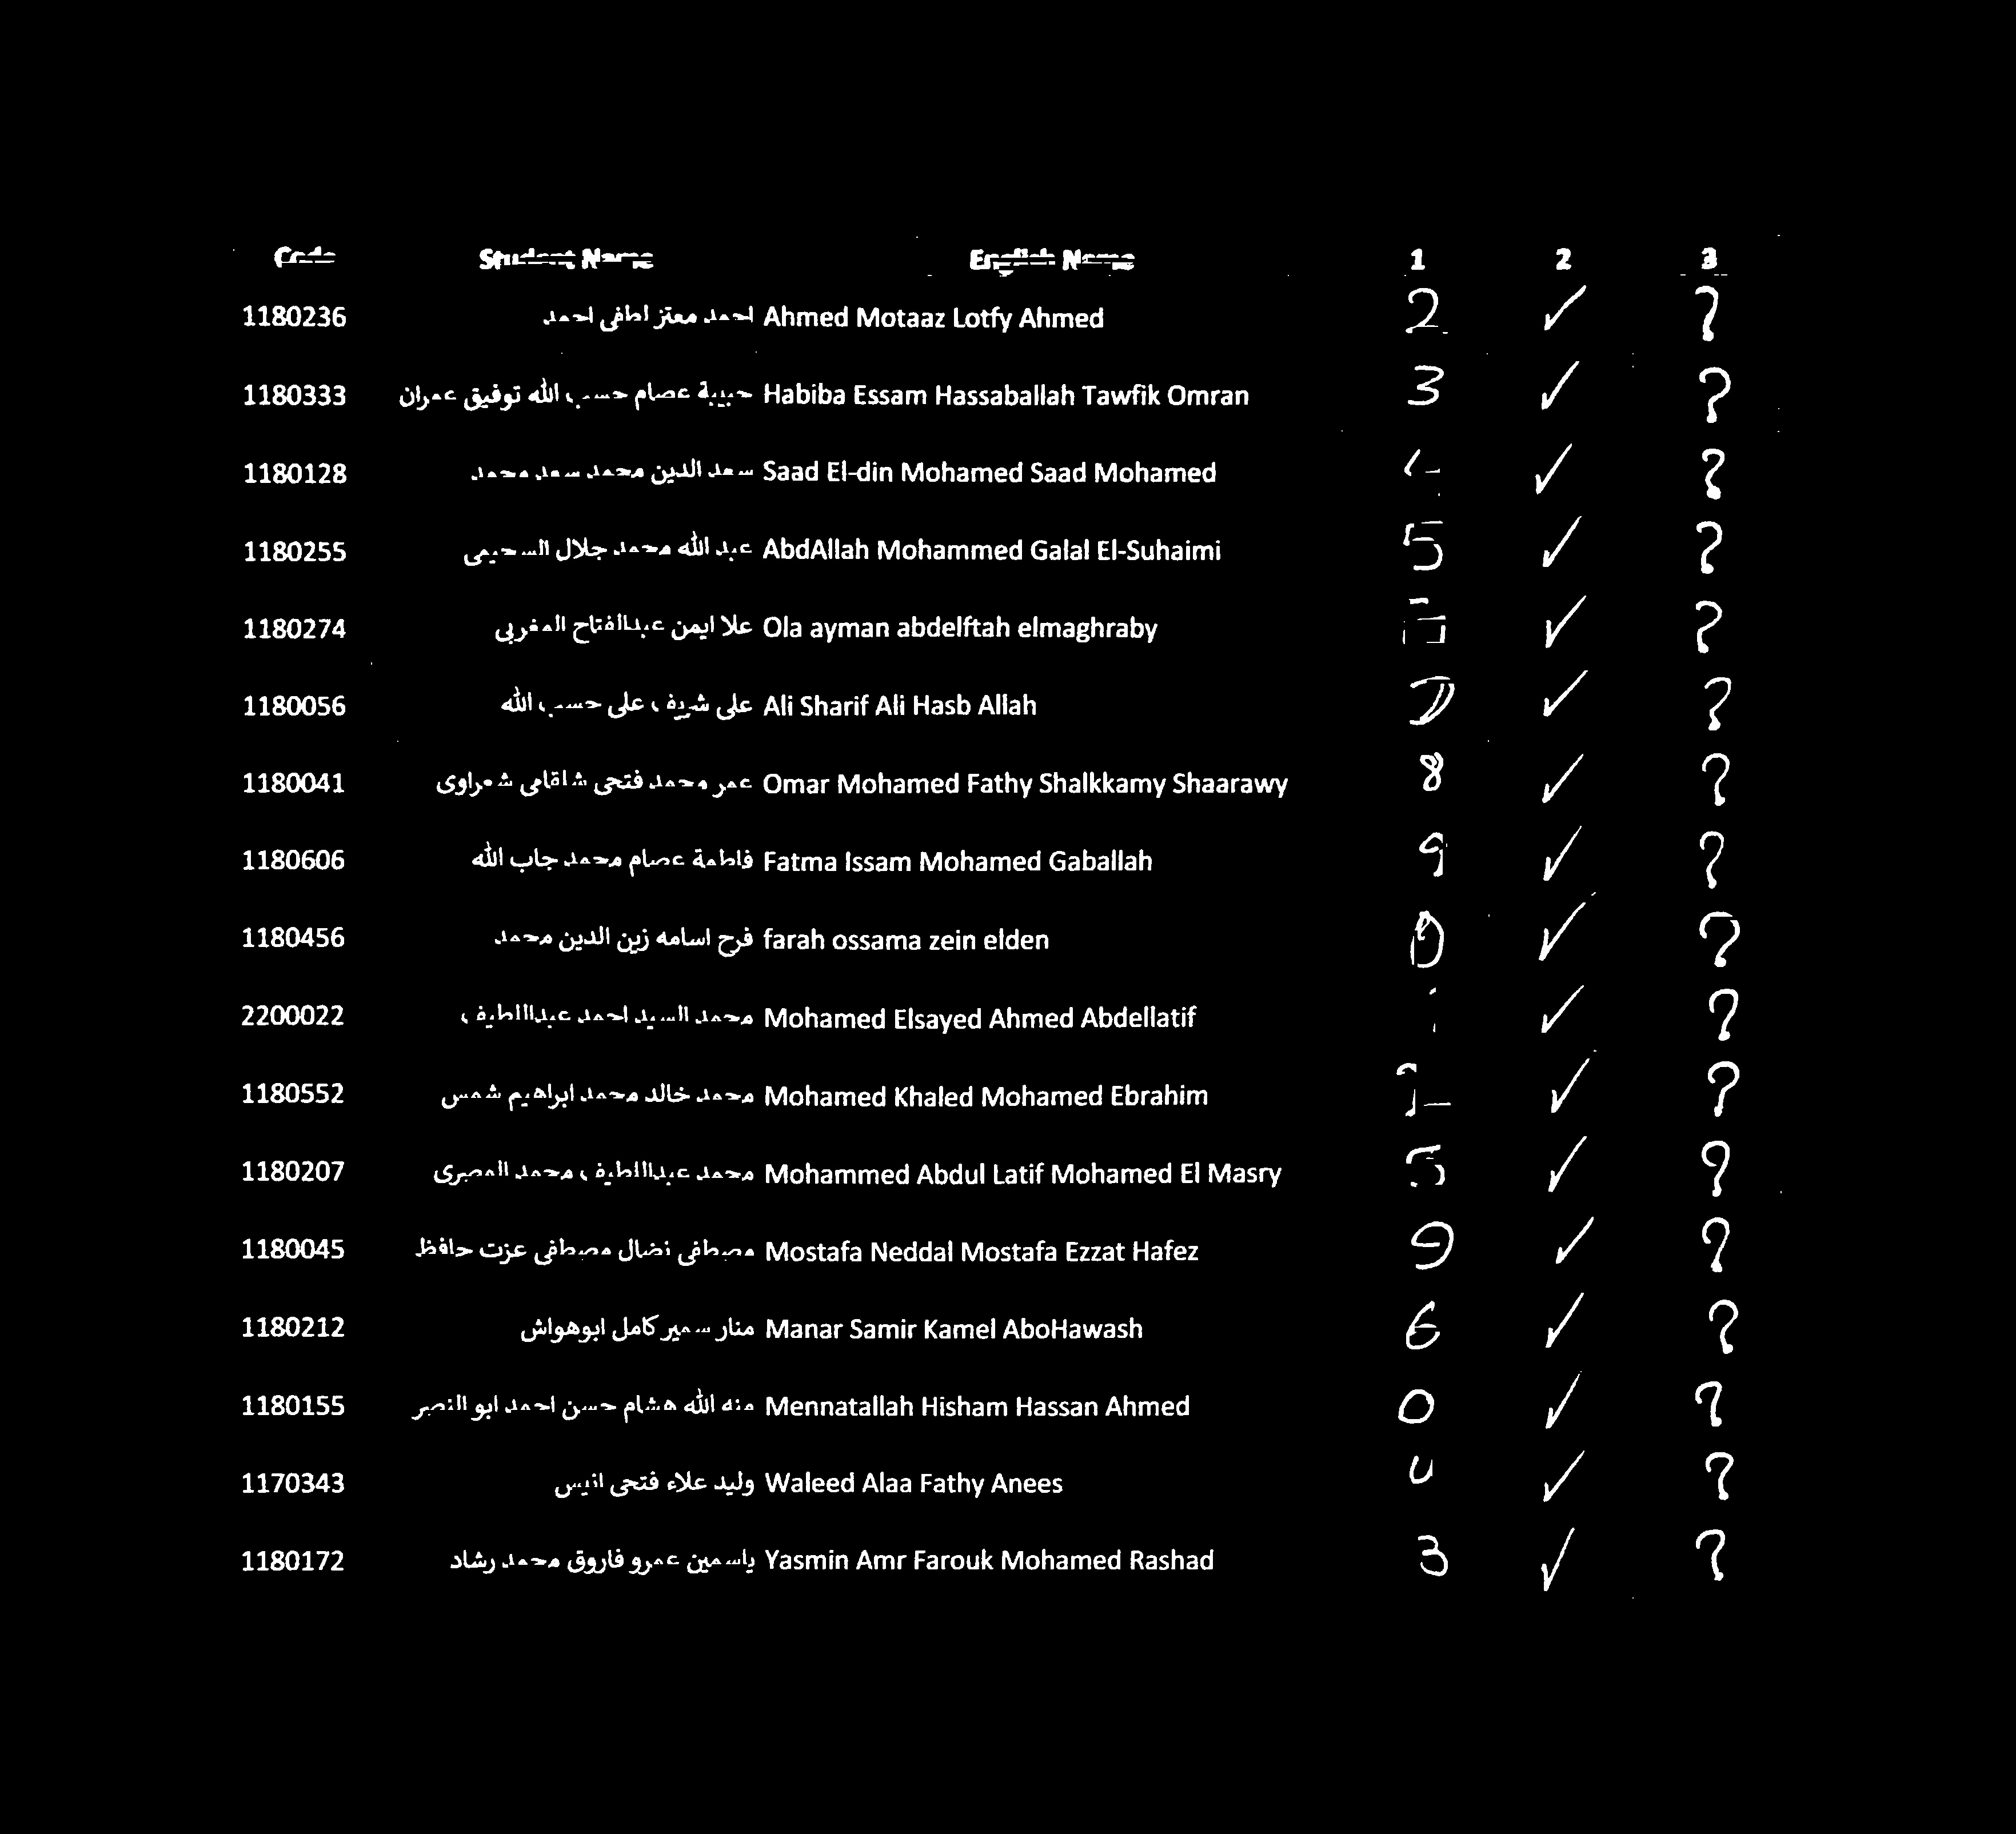 Code Student Name English Name 1 2 3
1180236 احمد معتز لطفى احمد Ahmed Motaaz Lotfy Ahmed 2 ✓ ?
1180333 حبيبة عصام حسب الله توفيق عمران Habiba Essam Hassaballah Tawfik Omran 3 ✓ ?
1180128 سعد الدين محمد سعد محمد Saad El-din Mohamed Saad Mohamed ✓ ?
1180255 عبد الله محمد جلال السحيمى AbdAllah Mohammed Galal El-Suhaimi 5 ✓ ?
1180274 علا ايمن عبدالفتاح المغربى Ola ayman abdelftah elmaghraby ✓ ?
1180056 على شريف على حسب الله Ali Sharif Ali Hasb Allah ✓ ?
1180041 عمر محمد فتحى شلقامى شعراوى Omar Mohamed Fathy Shalkkamy Shaarawy 8 ✓ ?
1180606 فاطمة عصام محمد جاب الله Fatma Issam Mohamed Gaballah 9 ✓ ?
1180456 فرح اسامه زين الدين محمد farah ossama zein elden ✓ ?
2200022 محمد السيد احمد عبداللطيف Mohamed Elsayed Ahmed Abdellatif ✓ ?
1180552 محمد خالد محمد ابراهيم شمس Mohamed Khaled Mohamed Ebrahim ✓ ?
1180207 محمد عبداللطيف محمد المصرى Mohammed Abdul Latif Mohamed El Masry 5 ✓ ?
1180045 مصطفى نضال مصطفى عزت حافظ Mostafa Neddal Mostafa Ezzat Hafez 9 ✓ ?
1180212 منار سمير كامل ابوهواش Manar Samir Kamel AboHawash 6 ✓ ?
1180155 منه الله هشام حسن احمد ابو النصر Mennatallah Hisham Hassan Ahmed 0 ✓ ?
1170343 وليد علاء فتحى انيس Waleed Alaa Fathy Anees ✓ ?
1180172 ياسمين عمرو فاروق محمد رشاد Yasmin Amr Farouk Mohamed Rashad 3 ✓ ?